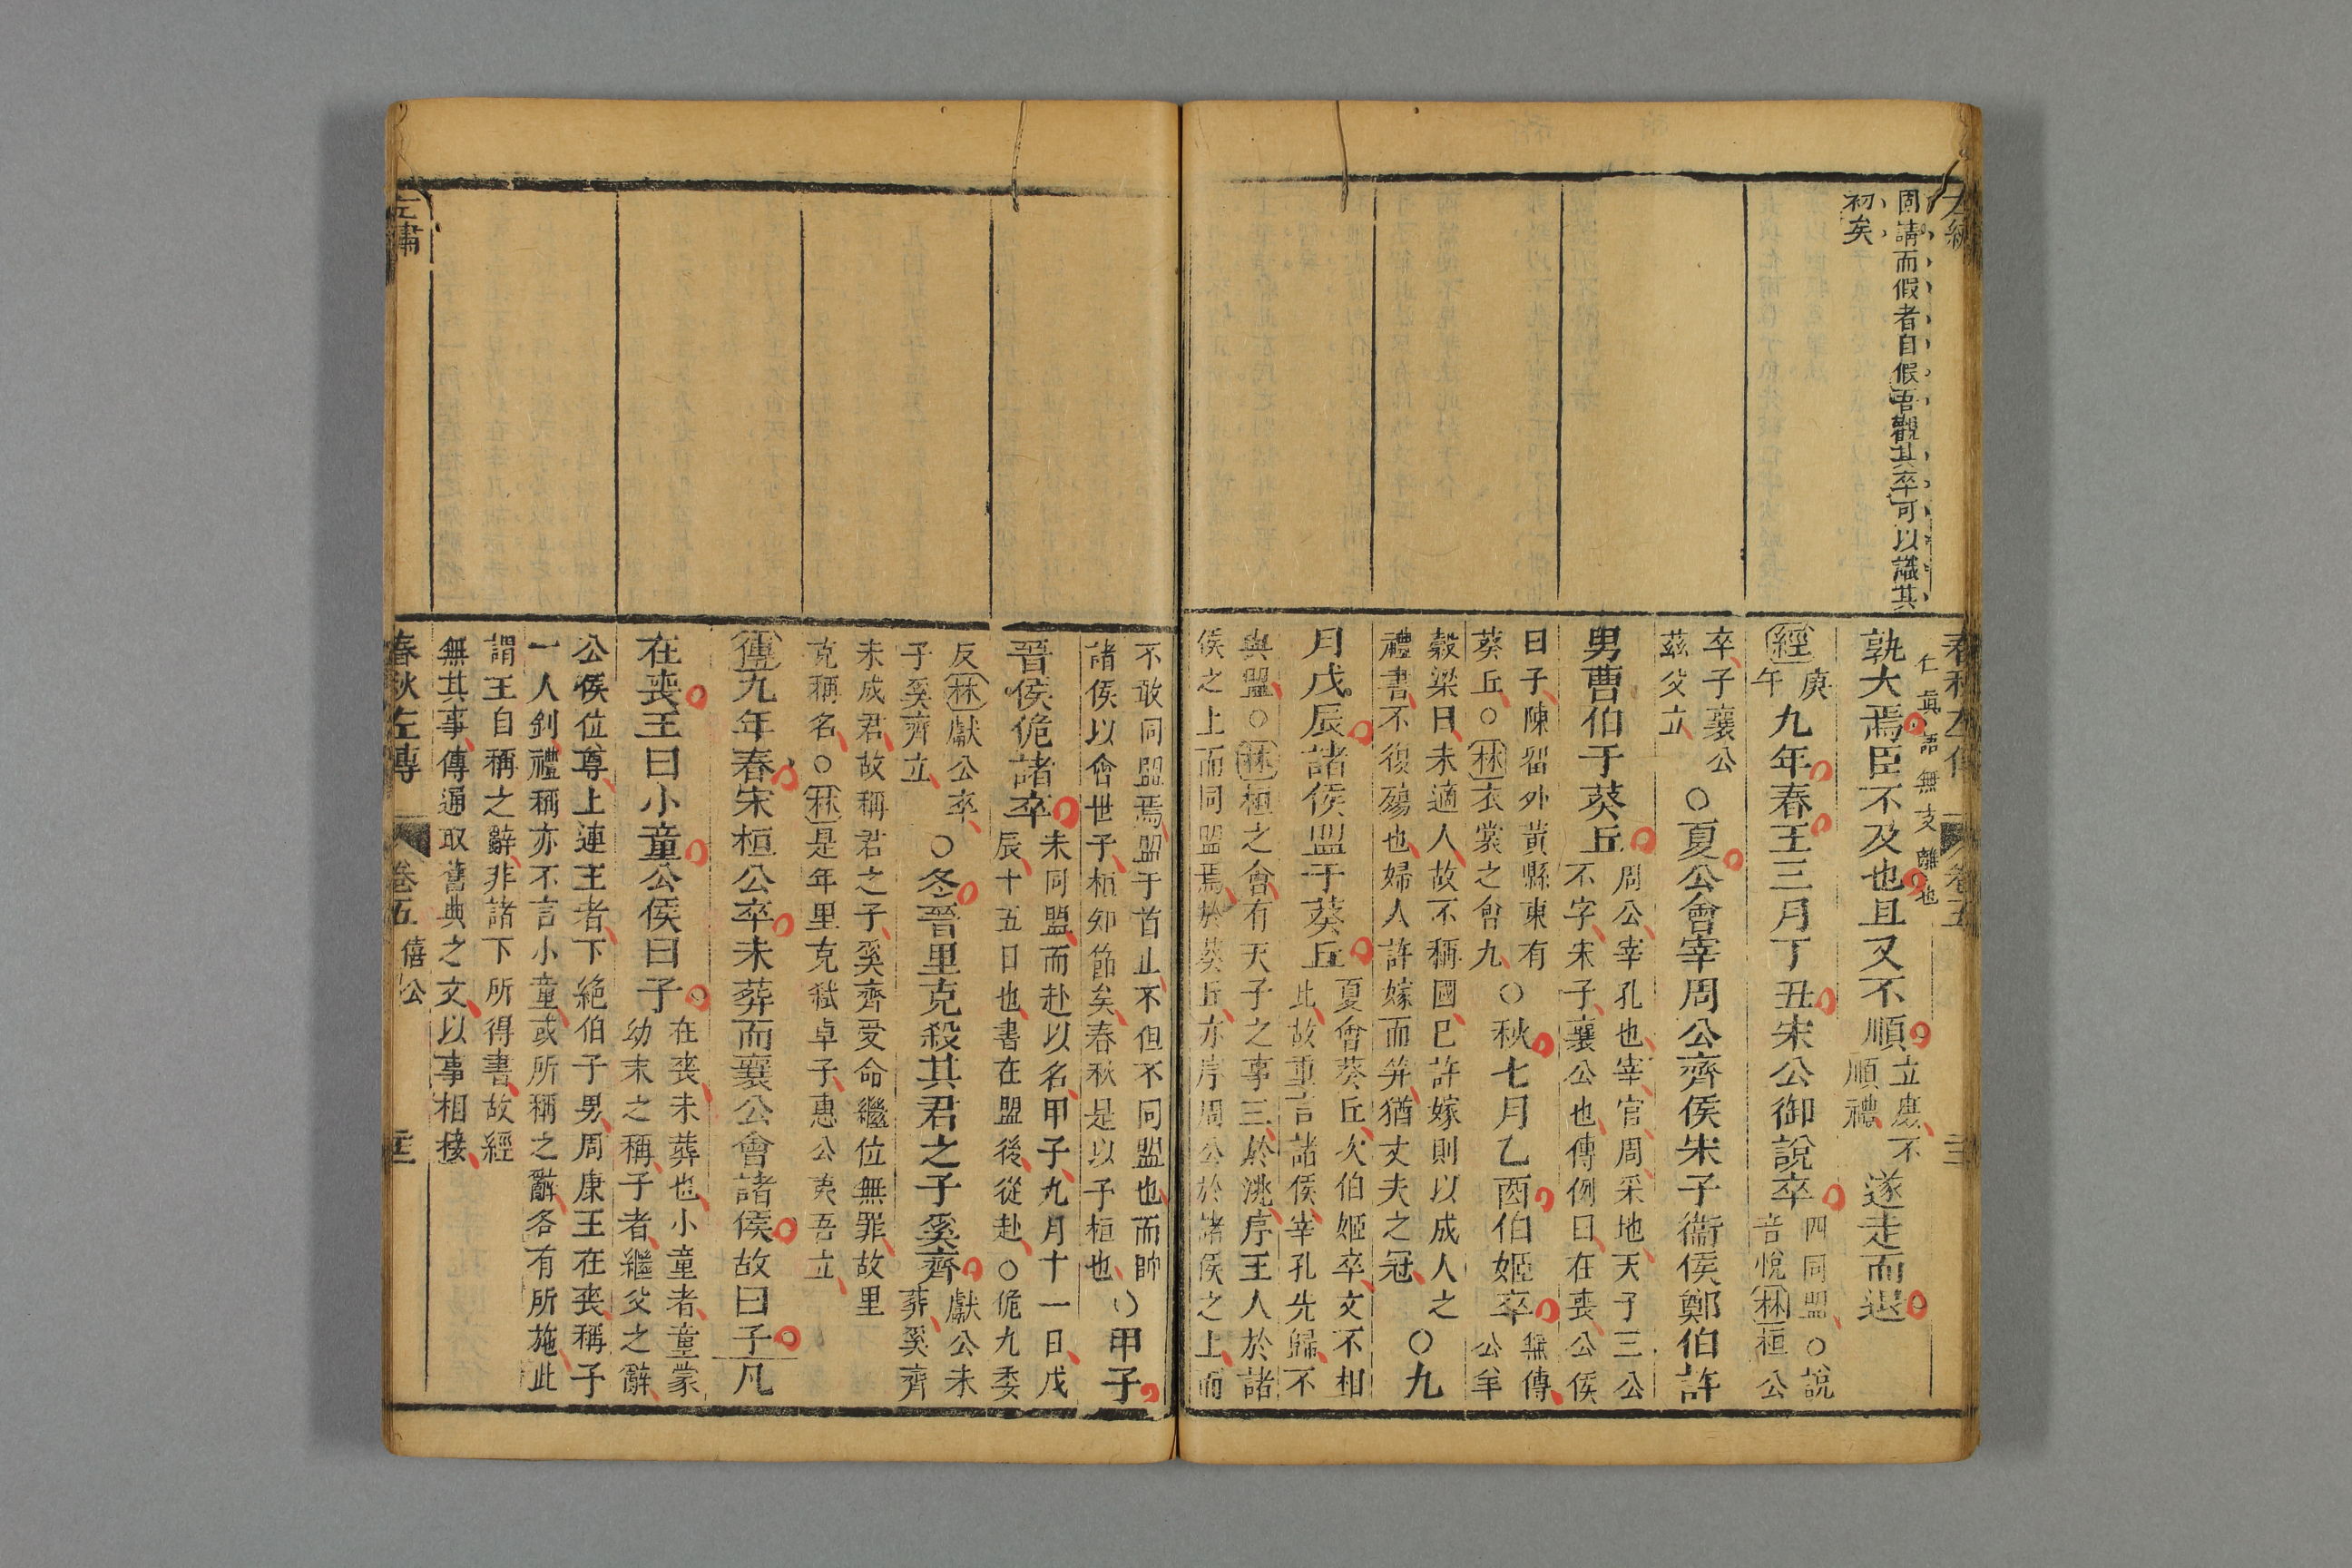 固請而假者自假吾觀其卒可以識其
初矣
仁眞語無支離也
孰大焉臣不及也且又不順立庶不
順禮遂走而退
經庚
午九年春王三月丁丑宋公御說卒四同盟○說
音悅林桓公
卒子襄公
茲父立○夏公會宰周公齊侯宋子衞侯鄭伯許
男曹伯于葵丘周公宰孔也宰官周采地天子三公
不字宋子襄公也傳例曰在喪公侯
曰子陳留外黃縣東有
葵丘○林衣裳之會九○秋七月乙酉伯姬卒無傳
公羊
穀梁曰未適人故不稱國已許嫁則以成人之
禮書不復殤也婦人許嫁而笄猶丈夫之冠○九
月戊辰諸侯盟于葵丘夏會葵丘次伯姬卒文不相
此故重言諸侯宰孔先歸不
與盟○林桓之會有天子之事三於洮序王人於諸
侯之上而同盟焉於葵丘亦序周公於諸侯之上而
不敢同盟焉盟于首止不但不同盟也而帥
諸侯以會世子桓知節矣春秋是以予桓也○甲子
晉侯佹諸卒未同盟而赴以名甲子九月十一日戊
辰十五日也書在盟後從赴○佹九委
反林獻公卒
子奚齊立○冬晉里克殺其君之子奚齊獻公未
葬奚齊
未成君故稱君之子奚齊受命繼位無罪故里
克稱名○林是年里克弒卓子惠公夷吾立
傳九年春宋桓公卒未葬而襄公會諸侯故曰子凡
在喪王曰小童公侯曰子在喪未葬也小童者童蒙
幼末之稱子者繼父之辭
公侯位尊上連王者下絶伯子男周康王在喪稱子
一人釗禮稱亦不言小童或所稱之辭各有所施此
謂王自稱之辭非諸下所得書故經
無其事傳通取舊典之文以事相接
春秋左傳 卷五 僖公